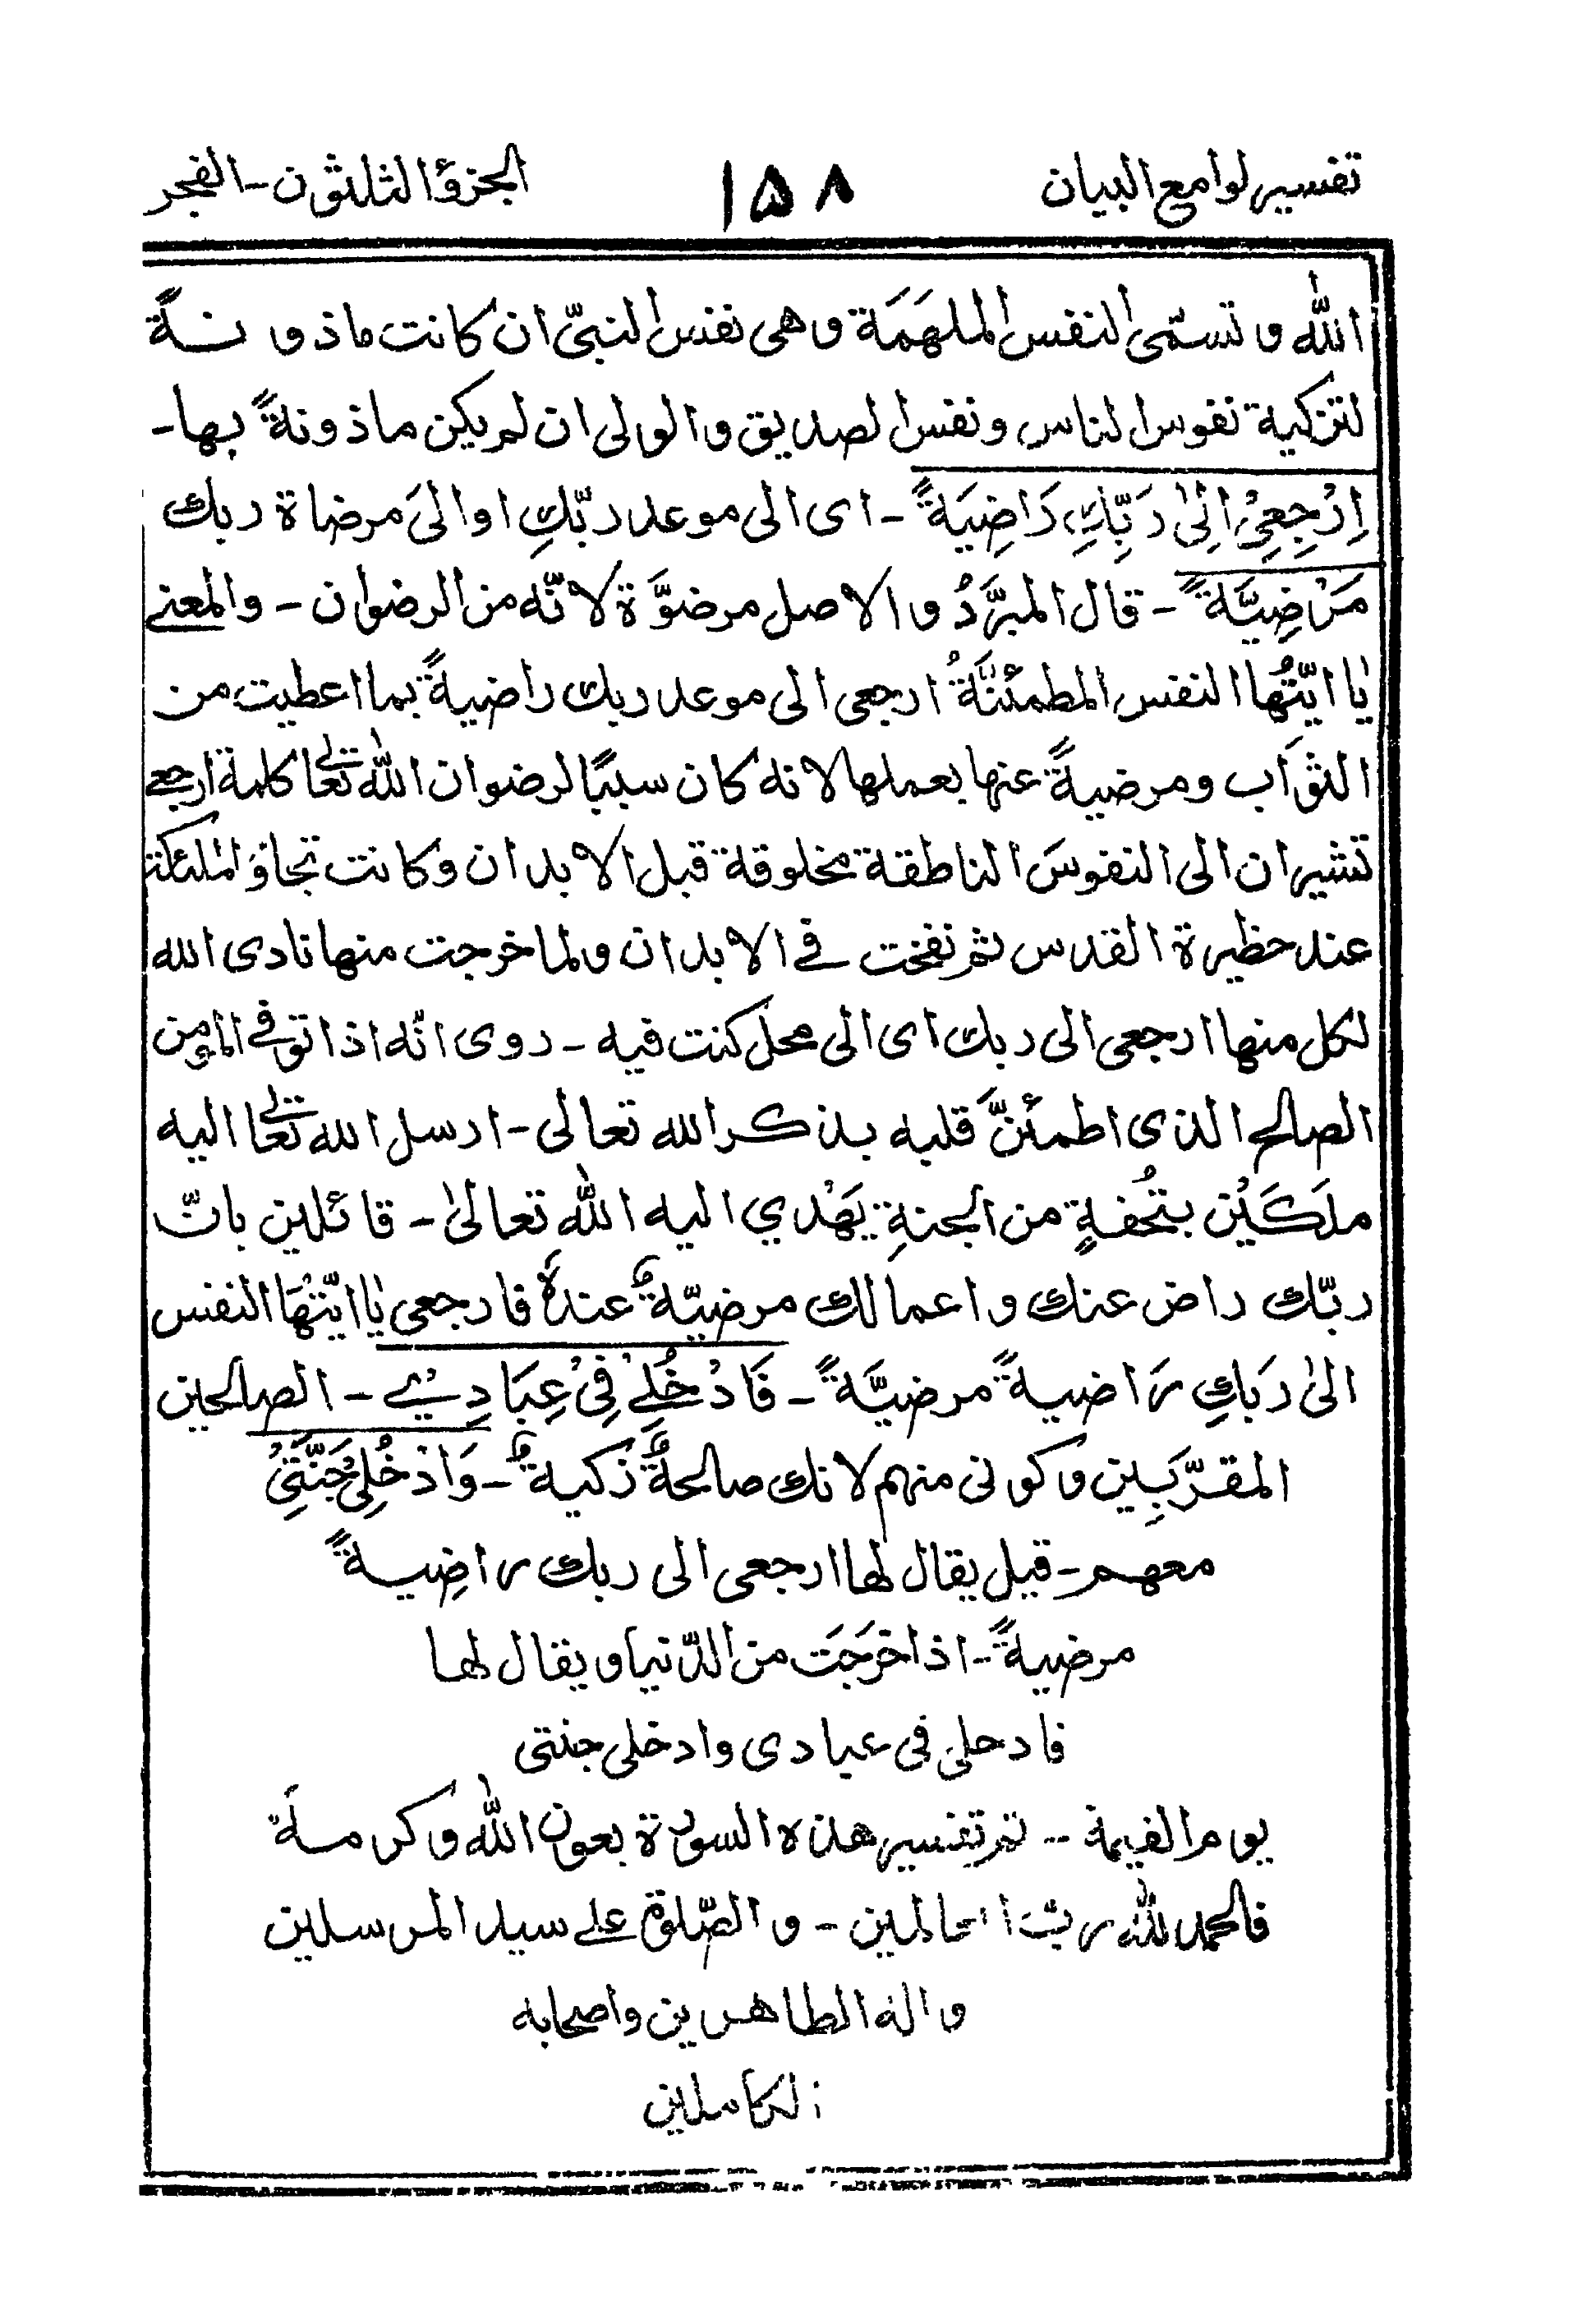 تفسير لوامع البيان ١٥٨ الجزؤ الثلثون - الفجر
الله و تسمّى النفس الملهَمَة و هى نفس النبىّ ان كانت ماذونةً
لتزكية نفوس الناس و نفس الصديق و الولى ان لم يكن ماذونةً بها -
اِرْجِعِىْ اِلٰى رَبِّكِ رَاضِيَةً - اى الى موعد ربّكِ او الىَ مرضاة ربك
مَرْضِيَّةً - قال المبرَّدُ و الاصل مرضوَّة لانّه من الرضوان - والمعنے
يٰا ايّتُها النفس المطمئنّةُ ارجعى الى موعد ربك راضيةً بما اعطيت من
الثوَاب و مرضيةً عنها بعملها لانه كان سببًا لرضوان الله تعالى كلمة ارجعے
تشير ان الى النفوسَ الناطقة مخلوقة قبل الابدان و كانت تجاوٗ الملئكة
عند حظيرة القدس ثم نفخت فے الابدان و لما خرجت منها نادى الله
لكل منها ارجعى الى ربك اى الى محل كنت فيه - روى انّه اذا توفے المومن
الصالح الذى اطمئنَّ قلبه بذكر الله تعالى - ارسل الله تعالى اليه
ملَكَيْن بتُحفةٍ من الجنةِ يَهْدي اليه الله تعالىٰ - قائلين بانّ
ربّك راض عنك و اعمالك مرضيّةٌ عندهٗ فارجعى يٰا ايّتُهَا النفس
الىٰ رَبكِ راضيةً مرضيَّةً - فَادْخُلِےْ فِىْ عِبَادِىْ - الصالحين
المقرّبِين و كونى منهم لانك صالحةٌ زكيةٌ - وَادْخُلِىْ جَنَّتِىْ
معهم - قيل يقال لها ارجعى الى ربك راضِيةً
مرضيةً - اذا خرَجَت من الدّنيا و يقال لها
فادخلى فى عبادى وادخلى جنتى
يوم القيمة - تم تفسير هذه السورة بعون الله و كرمه
فالحمد لله ربّ العالمين - و الصّلوة علے سيد المرسلين
و اله الطاهرين و اصحابه
الكاملين